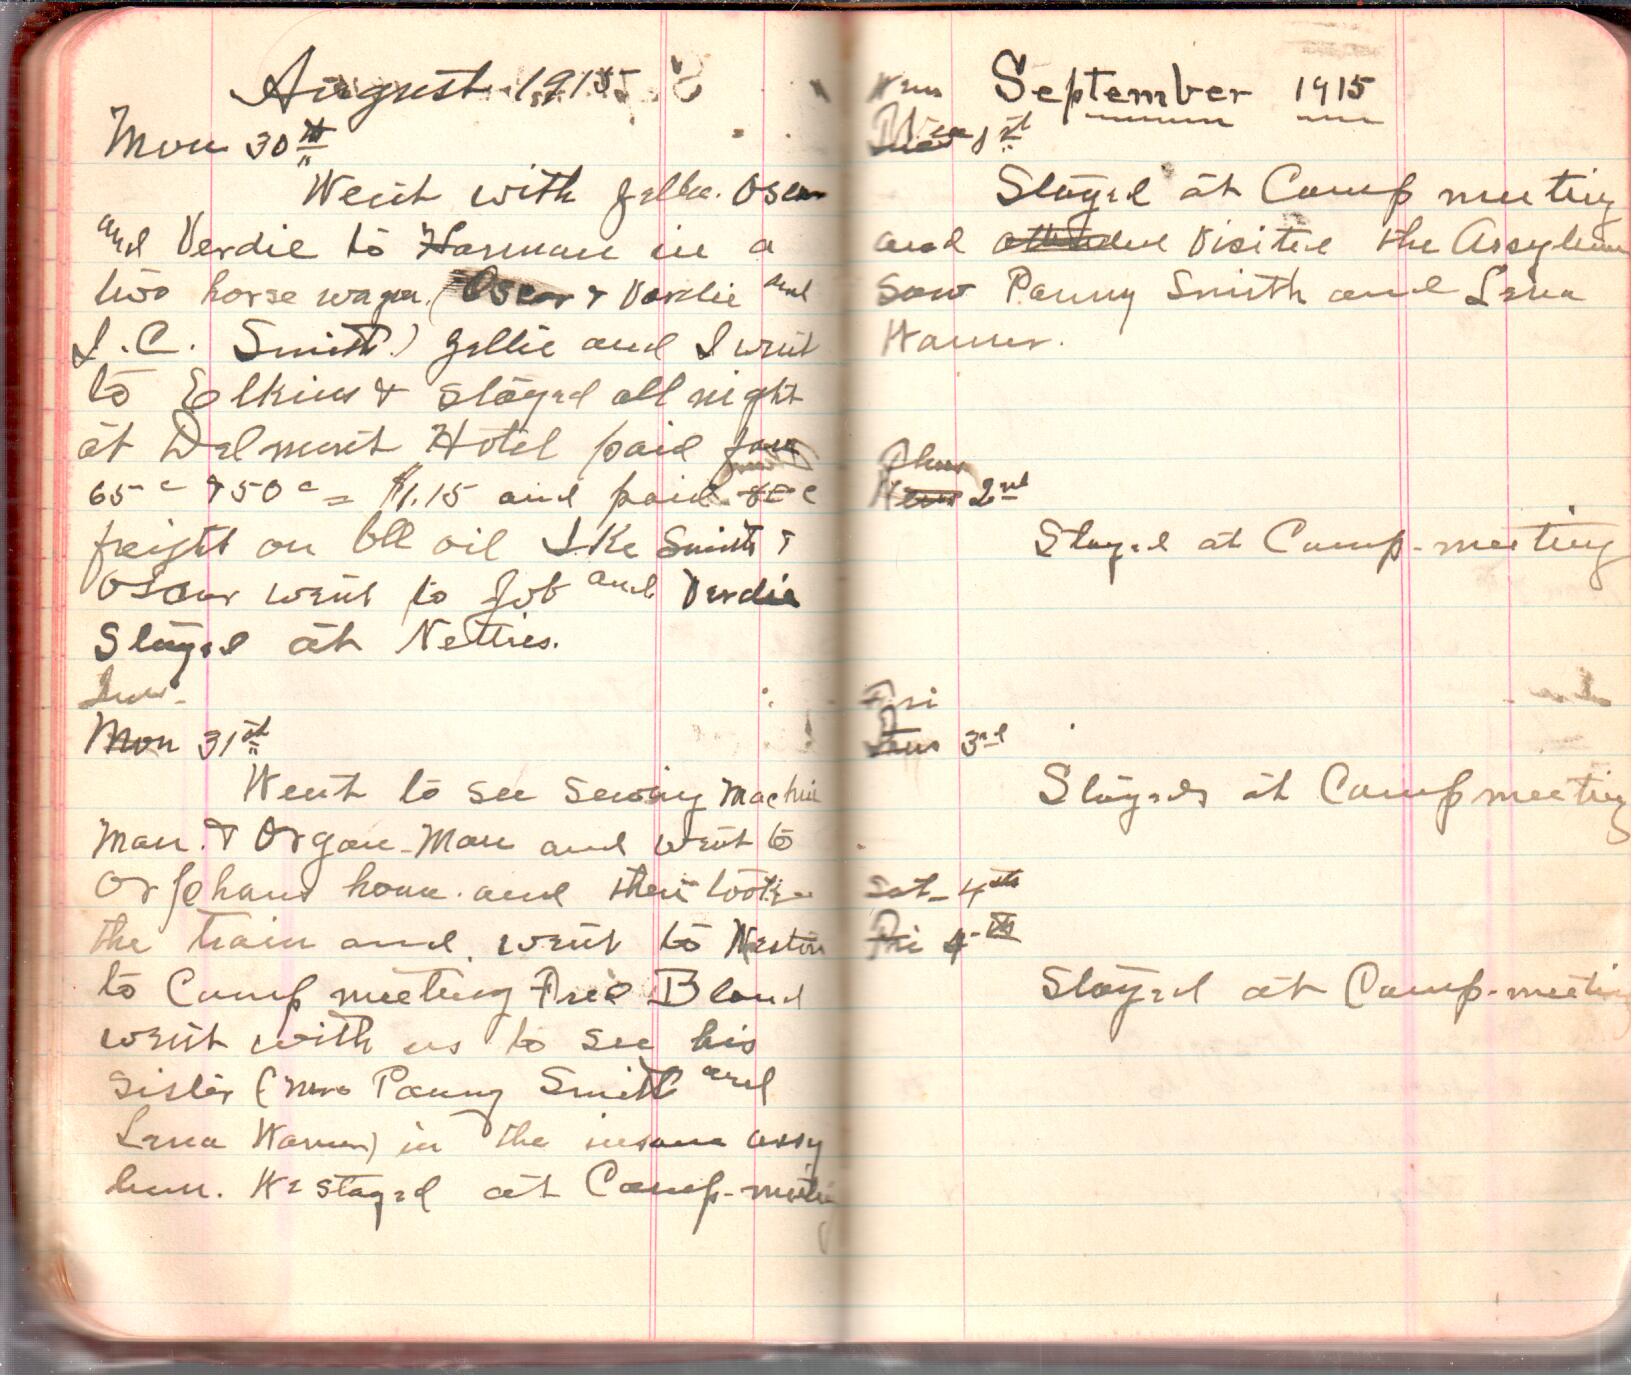 August 1915
Mon 30th
Went with Zellie. Oscar
and Verdie to Harman in a
two horse wagon. (Oscar & Verdie and
I. C. Smith.) Zellie and I went
to Elkins & stayed all night
at Delmont Hotel paid
65c & 50c = $1.15 and paid 80c
freight on bbl oil Ike Smith &
Oscar went to Job and Verdie
Stayed at Netties.
Tues.
Mon 31st
Went to see sewing machine
man. & Organ-Man and went to
Orphans home. and then took
the train and went to Weston
to Camp meeting Fred Bland
went with us to see his
sister (Mrs Panny Smith and
Lena Harner) in the insane assy
lum. We stayed at Camp-meeting
September 1915
Wens
1st
Stayed at Camp meeting
and attended visited the Assylum
Saw Panny Smith and Lena
Harner.
Thur
Wens 2nd
Stayed at Camp-meeting
Fri
3rd
Stayed at Camp meeting
Sat- 4th
Fri 4th
Stayed at Camp-meeting